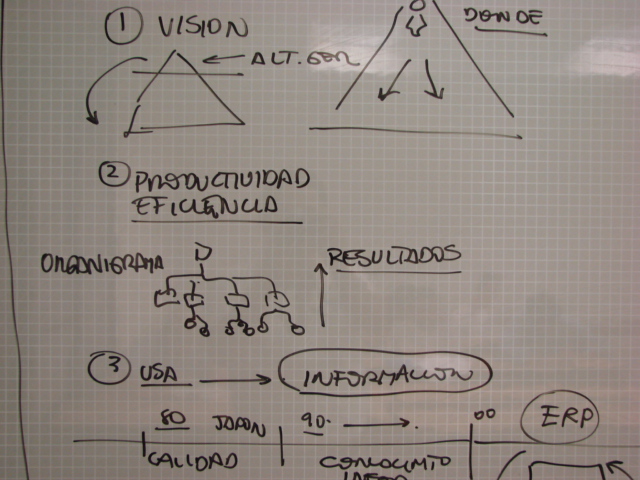 1 VISION
DONDE
ALT. GER
2 PRODUCTIVIDAD
EFICIENCIA
ORGANIGRAMA
D
RESULTADOS
3 USA
INFORMACION
80 JAPON 90. 00 ERP
CALIDAD
CONOCIMTO